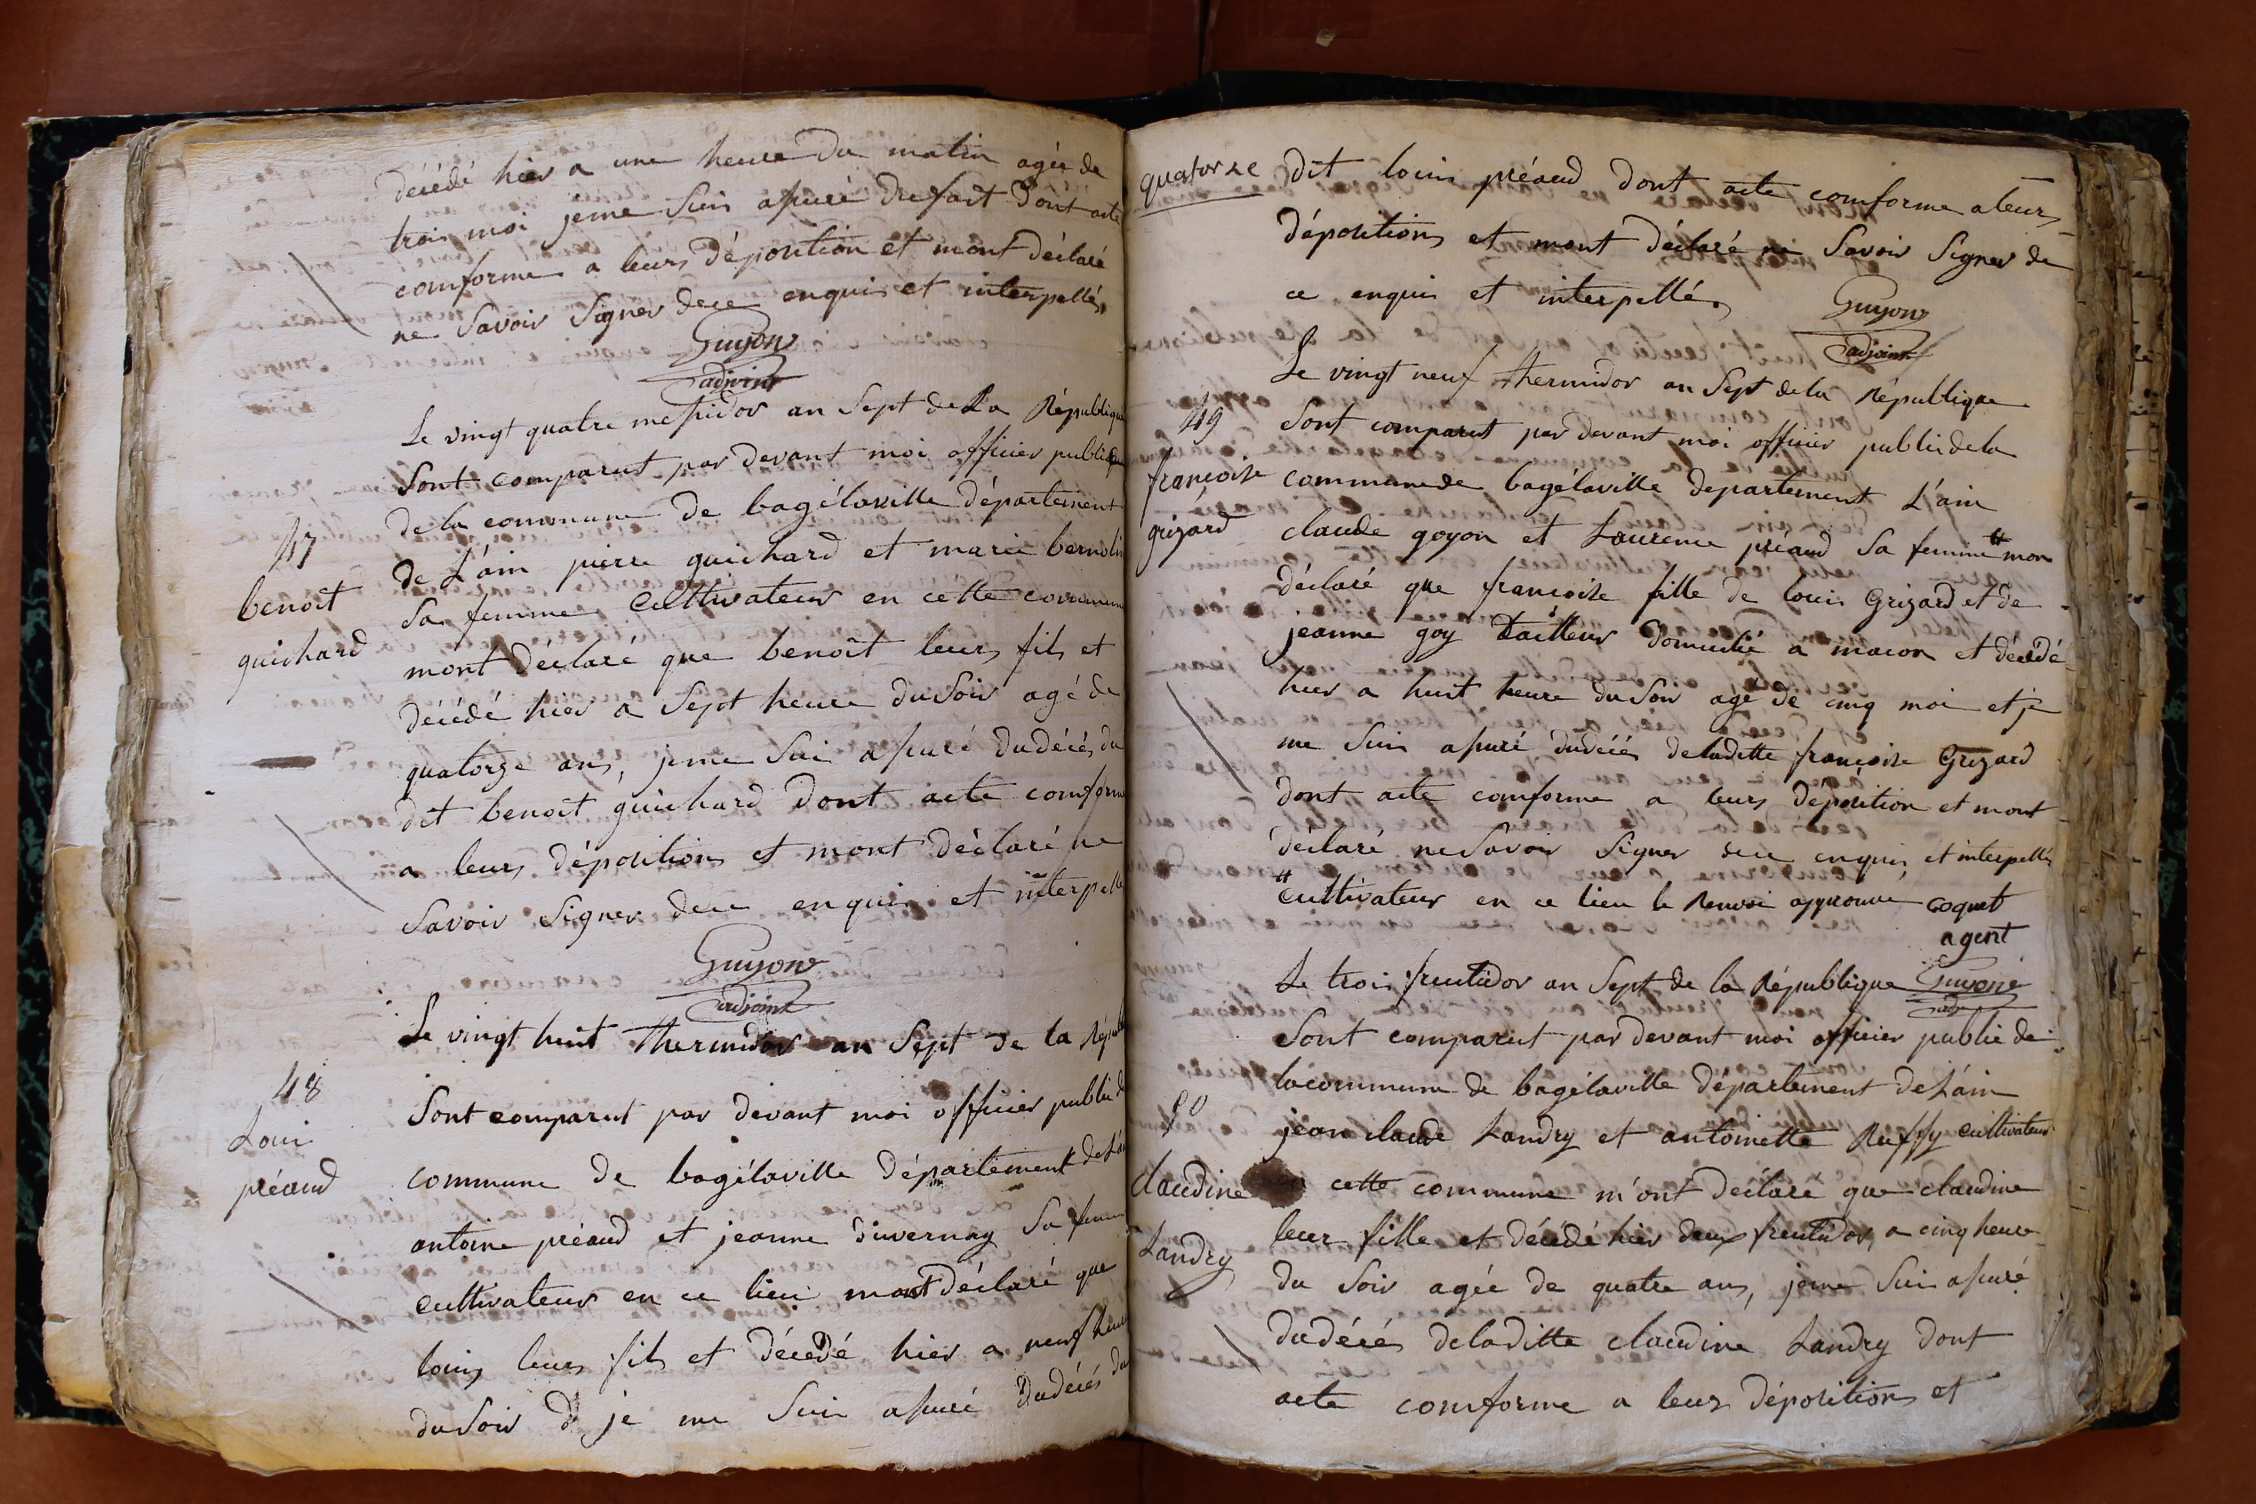 décédé hier a une heure du matin agée de
trois moi jeme suis assuré dufait Dont acte
comforme a leurs déposition et mont déclaré
ne savoir signer dece enquis et interpellés
Guyon
adjoint
Le vingt quatre messidor an sept dela République
sont comparut par devant moi officier publique
de la commune de bagélaville département
47
de L'ain pierre guichard et marie bernolin
benoit
sa femme cultivateur en cette commune
guichard
mont déclaré que benoit leurs fils et
décédé hier a sept heure dusoir agé de
quatorze ans, jeme suis assuré dudécés du
dit benoit guichard dont acte comforme
a leurs dépositions et mont déclaré ne
savoir signer dece enquis et interpellé
Guyon
adjoint
Le vingt huit thermidor an sept de la Répub
48
sont comparut par devant moi officier public de
Loui
préaud
commune de bagélaville département deL'ain
antoine préaud et jeanne duvernay sa femme
cultivateur en ce lieu mont déclaré que
louis leurs fils et décédé hier a neuf heure
dusoir je me suis assuré dudécés du
quatorze
dit louis préaud dont acte comforme a leurs
dépositions et mont déclaré ne savoir signer de
ce enquis et interpellés
Guyon
adjoint
Le vingt neuf thermidor an sept dela République
49
sont comparut par devant moi officier public dela
françoise
commune de bagélaville departement L'ain
grizard
claude goyon et Laurence préaud sa femme # mon
déclaré que françoise fille de louis Grizard et de
jeanne goy tailleur domicilié a macon et décédé
hier a huit heure du soir agé de cinq moi et je
me suis assuré dudécés deladitte françoise Grizard
dont acte comforme a leurs déposition et mont
déclaré nesavoir signer dece enquis et interpellés
# cultivateur en ce lieu le Renvoi approuvé coquet
agent
Le trois fructidor an sept de la République Guyon
adj
sont comparut par devant moi officier public de
lacommune de bagélaville département deL'ain
50
jean claude Landry et antoinette Ruffy cultivateur
claudine
en cette commune m'ont déclaré que claudine
Landry
leur fille et décédé hier deux fructidor, a cinq heure
du soir agée de quatre ans, jeme suis assuré
dudécés deladitte claudine Landry dont
acte comforme a leurs dépositions et